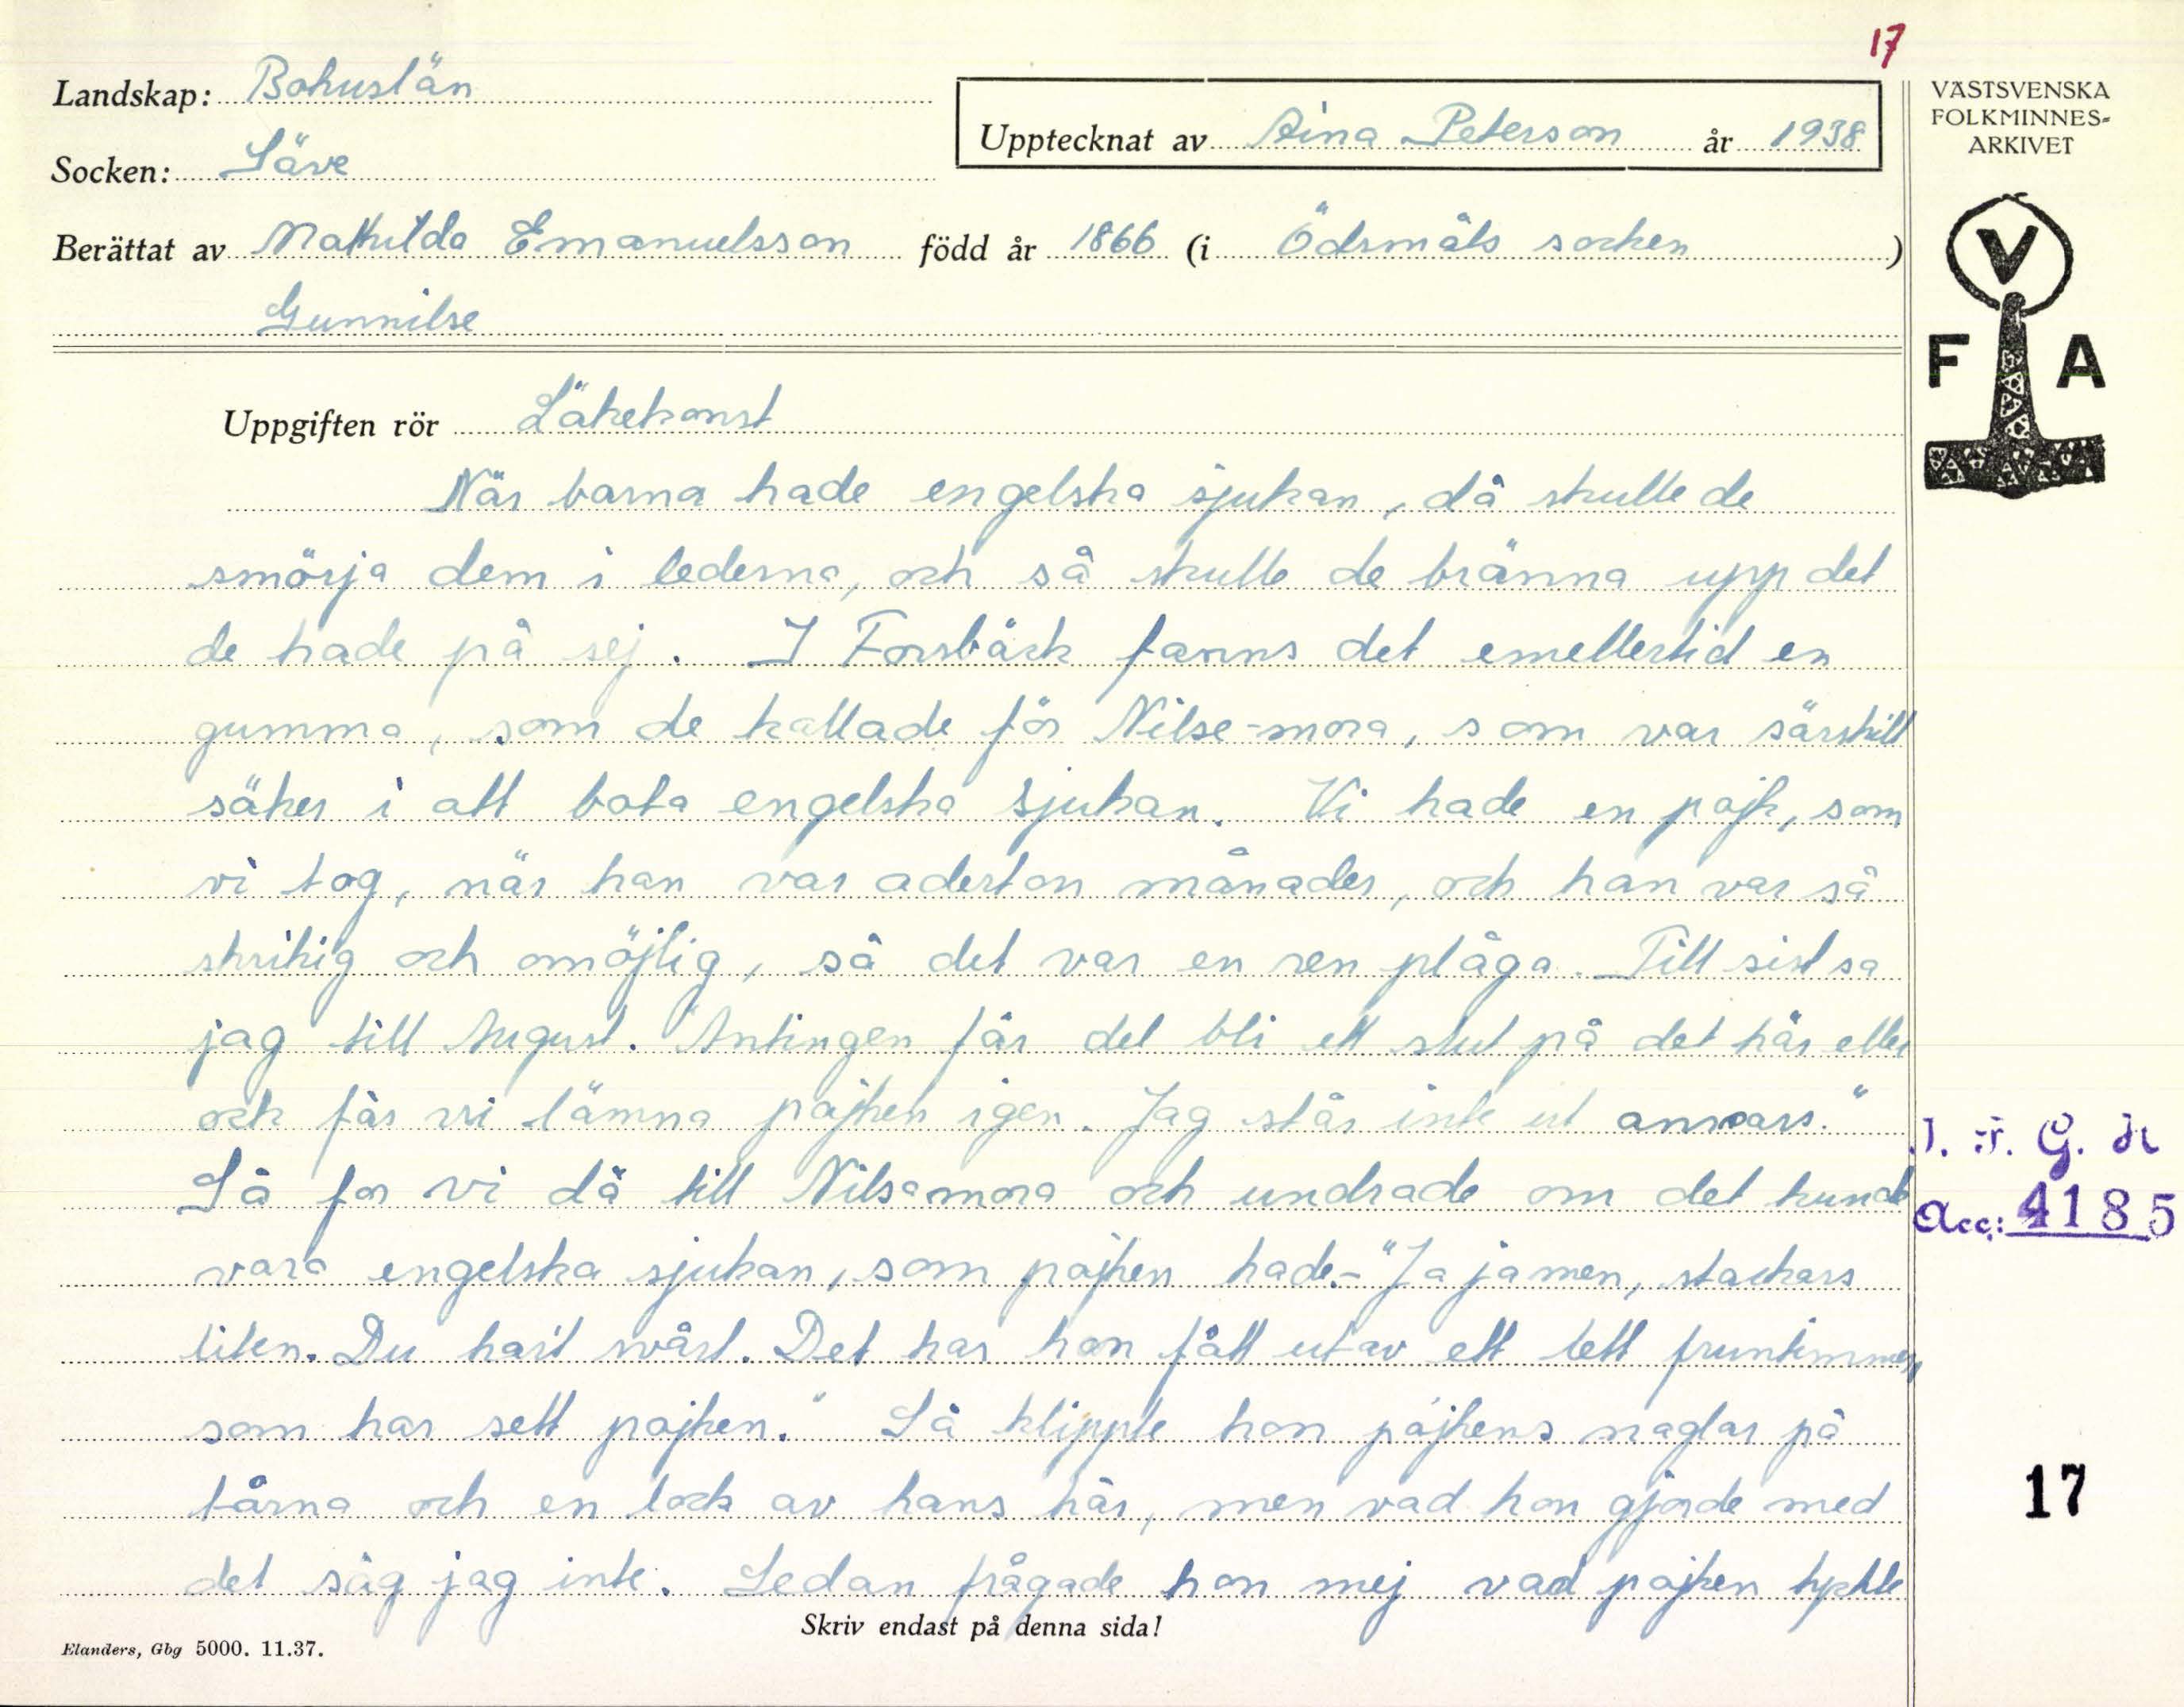 17
Landskap: Bohuslän
Socken: Säve
Upptecknat av Aina Peterson år 1938
Berättat av Mathilda Emanuelsson född år 1866 (i Ödsmåls socken)
Gunnilse
VÄSTSVENSKA
FOLKMINNES-
ARKIVET
V
F A
Uppgiften rör Läkekonst
När barna hade engelska sjukan, då skulle de
smörja dem i lederna, och så skulle de bränna upp det
de hade på sej. I Forsbäck fanns det emellertid en
gumma, som de kallade för Nilse-mora, som var särskilt
säker i att bota engelska sjukan. Vi hade en pojk, som
vi tog, när han var aderton månader, och han var så
skrikig och omöjlig, så det var en ren plåga. Till sist sa
jag till August. "Antingen får det bli ett slut på det här eller
och får vi lämna pojken igen. Jag står inte ut annars."
Så for vi då till Nilsamora och undrade om det kunde
vara engelska sjukan, som pojken hade.- "Ja jamen, stackars
liten. Du har't svårt. Det har han fått utav ett lett fruntimmer,
som har sett pojken." Så klippte hon pojkens naglar på
tårna och en lock av hans hår, men vad hon gjorde med
det såg jag inte. Sedan frågade hon mej vad pojken hette
I. F. G. H
Acc: 4185
17
Skriv endast på denna sida!
Elanders, Gbg 5000. 11.37.